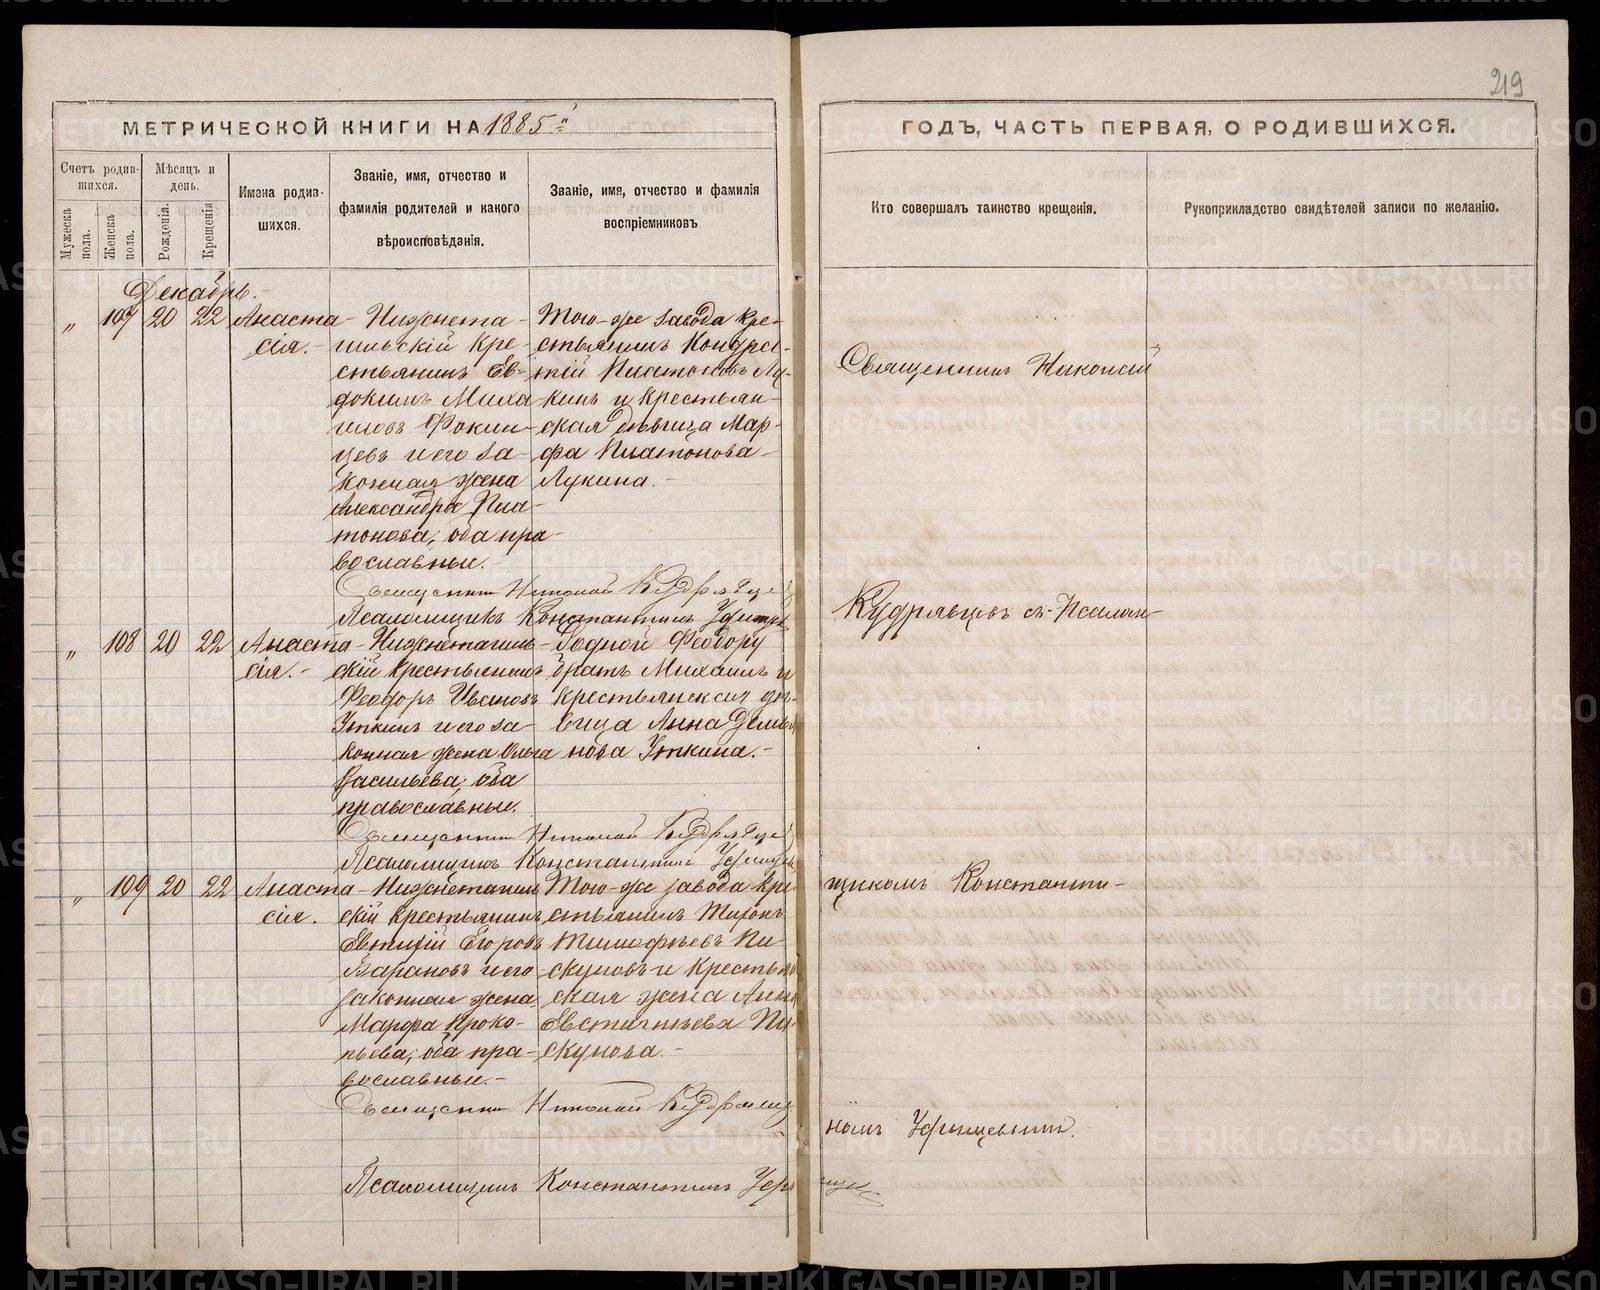 219
МЕТРИЧЕСКОЙ КНИГИ НА 1885й
ГОДЪ, ЧАСТЬ ПЕРВАЯ, О РОДИВШИХСЯ.
Счетъ родив-
шихся.
Мужеска пола.
Женска пола.
Мѣсяцъ и
день.
Рожденія.
Крещенія
Имена родив-
шихся.
Званіе, имя, отчество и
фамилія родителей и какого
вѣроисповѣданія.
Званіе, имя, отчество и фамилія
воспріемниковъ.
Кто совершалъ таинство крещенія.
Рукоприкладство свидѣтелей записи по желанію.
Декабрь.
„ 107 20 22
Анаста-
сія.
Нижнета-
гильскій кре-
стьянинъ Ев-
докимъ Миха
иловъ Фокин-
цевъ и его за-
конная жена
Александра Пла-
тонова, оба пра-
вославные.
Того-же завода кре-
стьянинъ Кондра-
тій Платоновъ Лу-
кинъ и крестьян-
ская дѣвица Мар-
фа Платонова
Лукина.
Священникъ Николай Кудрявце
Псаломщикъ Константинъ
„ 108 20 22
Анаста-
сія.
Нижнетагиль-
скій крестьянинъ
Феодоръ Ивановъ
Уткинъ и его за-
конная жена Ольга
Васильева, оба
православные.
Родной Феодору
братъ Михаилъ и
крестьянская дѣ-
вица Анна
нова Уткина.
Священникъ Николай Кудрявце
Псаломщикъ Константинъ
„ 109 20 22
Анаста-
сія.
Нижнетагиль
скій крестьянинъ
Евтихій Егоровъ
Барановъ и его
законная жена
Марфа Проко-
пьева, оба пра-
вославные.
Того-же завода кре
стьянинъ Миронъ
Тимофѣевъ Пи-
скуновъ и крестьян
ская жена Анна
Евстигнѣева Пи-
скунова.
Священникъ Николай Кудрявц
Псаломщикъ Константинъ
Священникъ Николай
Кудрявцевъ съ Псалом-
щикомъ Константи-
номъ
METRIKI.GASO-URAL.RU